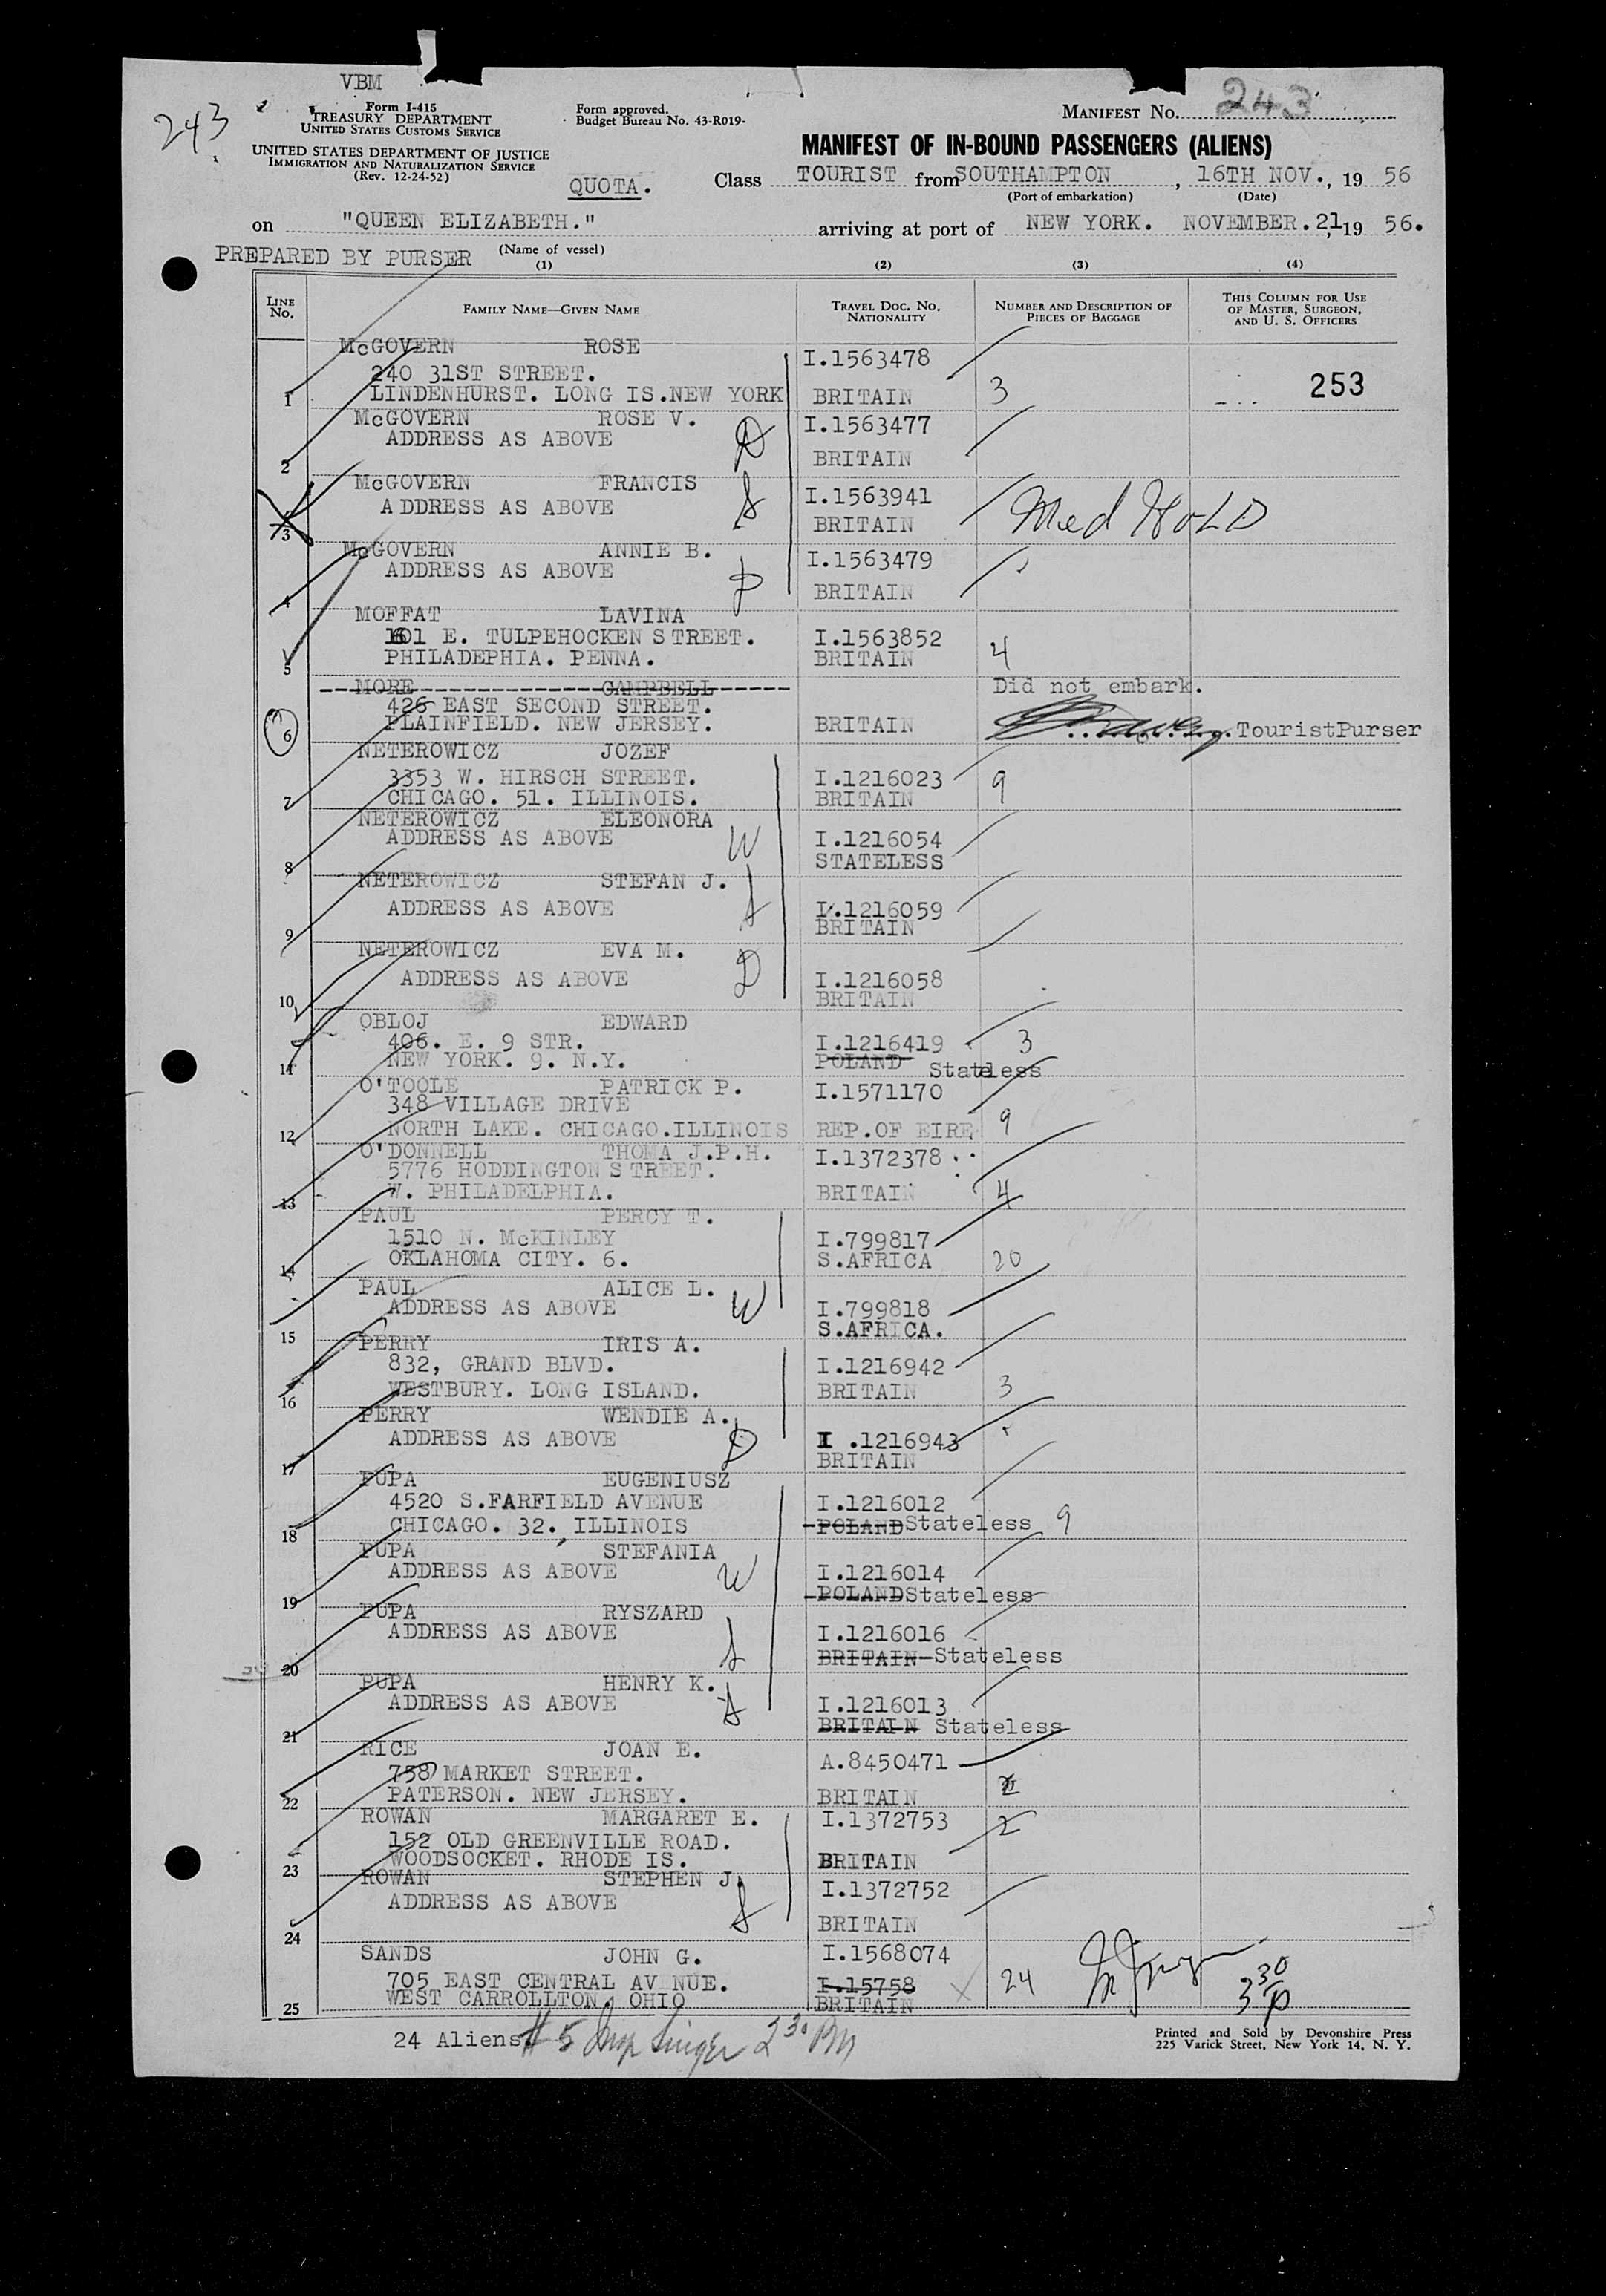 VBM
243
Form I-415
TREASURY DEPARTMENT
UNITED STATES CUSTOMS SERVICE
UNITED STATES DEPARTMENT OF JUSTICE
IMMIGRATION AND NATURALIZATION SERVICE
(Rev. 12-24-52)
Form approved.
Budget Bureau No. 43-R019-
MANIFEST No. 243
MANIFEST OF IN-BOUND PASSENGERS (ALIENS)
QUOTA. Class TOURIST from SOUTHAMPTON, 16TH NOV., 19 56
(Port of embarkation) (Date)
on "QUEEN ELIZABETH." arriving at port of NEW YORK. NOVEMBER.21, 19 56.
(Name of vessel)
PREPARED BY PURSER
(1) (2) (3) (4)
LINE No. FAMILY NAME—GIVEN NAME TRAVEL DOC. NO. NATIONALITY NUMBER AND DESCRIPTION OF PIECES OF BAGGAGE THIS COLUMN FOR USE OF MASTER, SURGEON, AND U. S. OFFICERS
McGOVERN ROSE I.1563478
240 31ST STREET.
1 LINDENHURST. LONG IS.NEW YORK BRITAIN 3 253
McGOVERN ROSE V. I.1563477
ADDRESS AS ABOVE D
2 BRITAIN
McGOVERN FRANCIS I.1563941
ADDRESS AS ABOVE S
3 BRITAIN Med HoLD
McGOVERN ANNIE B. I.1563479
ADDRESS AS ABOVE D
4 BRITAIN
MOFFAT LAVINA
101 E. TULPEHOCKEN STREET. I.1563852
5 PHILADEPHIA. PENNA. BRITAIN 4
MORE CAMPBELL Did not embark.
426 EAST SECOND STREET.
6 PLAINFIELD. NEW JERSEY. BRITAIN TouristPurser
NETEROWICZ JOZEF
3353 W. HIRSCH STREET. I.1216023 9
7 CHICAGO. 51. ILLINOIS. BRITAIN
NETEROWICZ ELEONORA
ADDRESS AS ABOVE W I.1216054
8 STATELESS
NETEROWICZ STEFAN J.
ADDRESS AS ABOVE S I.1216059
9 BRITAIN
NETEROWICZ EVA M.
ADDRESS AS ABOVE D I.1216058
10 BRITAIN
OBLOJ EDWARD
406. E. 9 STR. I.1216419 3
11 NEW YORK. 9. N.Y. POLAND Stateless
O'TOOLE PATRICK P. I.1571170
348 VILLAGE DRIVE
12 NORTH LAKE. CHICAGO.ILLINOIS REP.OF EIRE 9
O'DONNELL THOMA J.P.H. I.1372378
5776 HODDINGTON STREET.
13 W. PHILADELPHIA. BRITAIN 4
PAUL PERCY T.
1510 N. McKINLEY I.799817
14 OKLAHOMA CITY. 6. S.AFRICA 20
PAUL ALICE L.
ADDRESS AS ABOVE W I.799818
15 S.AFRICA.
PERRY IRIS A.
832, GRAND BLVD. I.1216942
16 WESTBURY. LONG ISLAND. BRITAIN 3
PERRY WENDIE A.
ADDRESS AS ABOVE D I .1216943
17 BRITAIN
PUPA EUGENIUSZ
4520 S.FARFIELD AVENUE I.1216012
18 CHICAGO. 32. ILLINOIS POLAND Stateless 9
PUPA STEFANIA
ADDRESS AS ABOVE W I.1216014
19 POLAND Stateless
PUPA RYSZARD
ADDRESS AS ABOVE S I.1216016
20 BRITAIN Stateless
PUPA HENRY K.
ADDRESS AS ABOVE S I.1216013
21 BRITAIN Stateless
RICE JOAN E. A.8450471
758 MARKET STREET.
22 PATERSON. NEW JERSEY. BRITAIN
ROWAN MARGARET E. I.1372753 2
152 OLD GREENVILLE ROAD.
23 WOODSOCKET. RHODE IS. BRITAIN
ROWAN STEPHEN J. I.1372752
ADDRESS AS ABOVE S
24 BRITAIN
SANDS JOHN G. I.1568074
705 EAST CENTRAL AV NUE. I.15758 24 3 30 p
25 WEST CARROLLTON, OHIO BRITAIN
24 Aliens # 5 Insp Singer 2 30 PM
Printed and Sold by Devonshire Press
225 Varick Street, New York 14, N. Y.